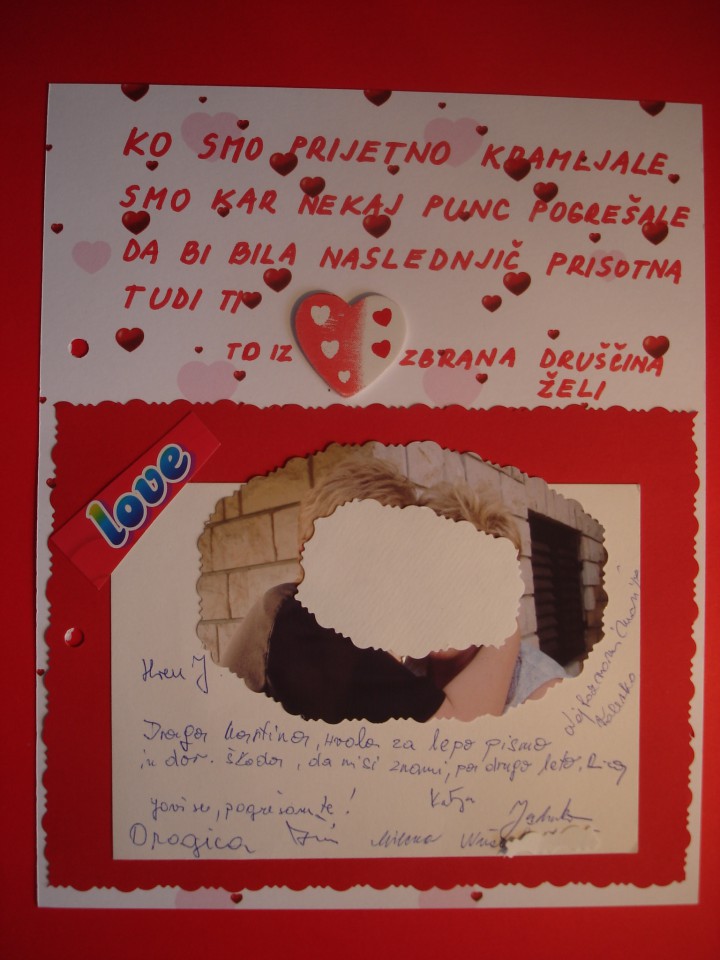 KO SMO PRIJETNO KRAMLJALE
SMO KAR NEKAJ PUNC POGREŠALE
DA BI BILA NASLEDNJIČ PRISOTNA
TUDI TI
TO IZ ZBRANA DRUŠČINA
ŽELI
love
Draga Martina, hvala za lepo pismo
in dar. Škoda, da nisi z nami, pa drugo leto.
javi se, pogrešam te!
Katja
Dragica Milena